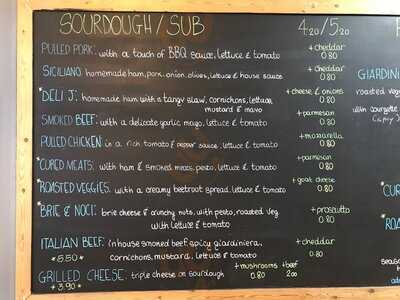 SOURDOUGH / SUB 4.20 / 5.20
PULLED PORK: with a touch of BBQ sauce, lettuce & tomato + cheddar 0.80
SICILIANO: homemade ham, pork, onion, olives, lettuce & house sauce + cheddar 0.80
*DELI J: homemade ham with a tangy slaw, cornichons, lettuce, mustard & mayo + cheese & onions 0.80
SMOKED BEEF: with a delicate garlic mayo, lettuce & tomato + parmesan 0.80
PULLED CHICKEN: in a rich tomato & pepper sauce, lettuce & tomato + mozzarella 0.80
*CURED MEATS: with ham & smoked meats, pesto, lettuce & tomato + parmesan 0.80
*ROASTED VEGGIES: with a creamy beetroot spread, lettuce & tomato + goat cheese 0.80
*BRIE & NOCI: brie cheese & crunchy nuts, with pesto, roasted veg with lettuce & tomato + prosciutto 0.80
ITALIAN BEEF: in house smoked beef, spicy giardiniera, cornichons, mustard, lettuce & tomato + cheddar 0.80
* 5.50 *
GRILLED CHEESE: triple cheese on sourdough + mushrooms 0.80 + beef 2.00
* 3.90 *
GIARDINI
roasted veg
with courgette
CUR
ROA